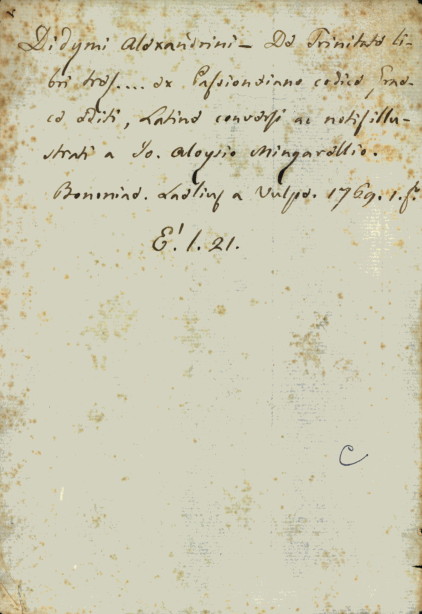 Didymi Alexandrini - De Trinitate li-
bri tres.... ex Passioneiano codice Græ-
ce editi, Latine conversi ac notis illu-
strati a Jo. Aloysio Mingarellio.
Bononiae. Laelius a Vulpe. 1769. 1. f.
E'. 1. 21.
C